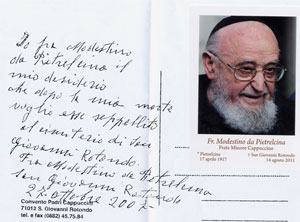 Io fra Modestino
da Pietrelcina il
mio desiderio
che dopo la mia morte
voglio esse seppellito
al cimiterio di San
Giovanni Rotondo.
Fra Modestino da Pietrelcina
San Giovanni Rotondo
22 ottobre 2002
Convento Padri Cappuccini
71013 S. Giovanni Rotondo
tel. e fax (0882) 45.75.84
Fr. Modestino da Pietrelcina
Frate Minore Cappuccino
* Pietrelcina
17 aprile 1917
† San Giovanni Rotondo
14 agosto 2011